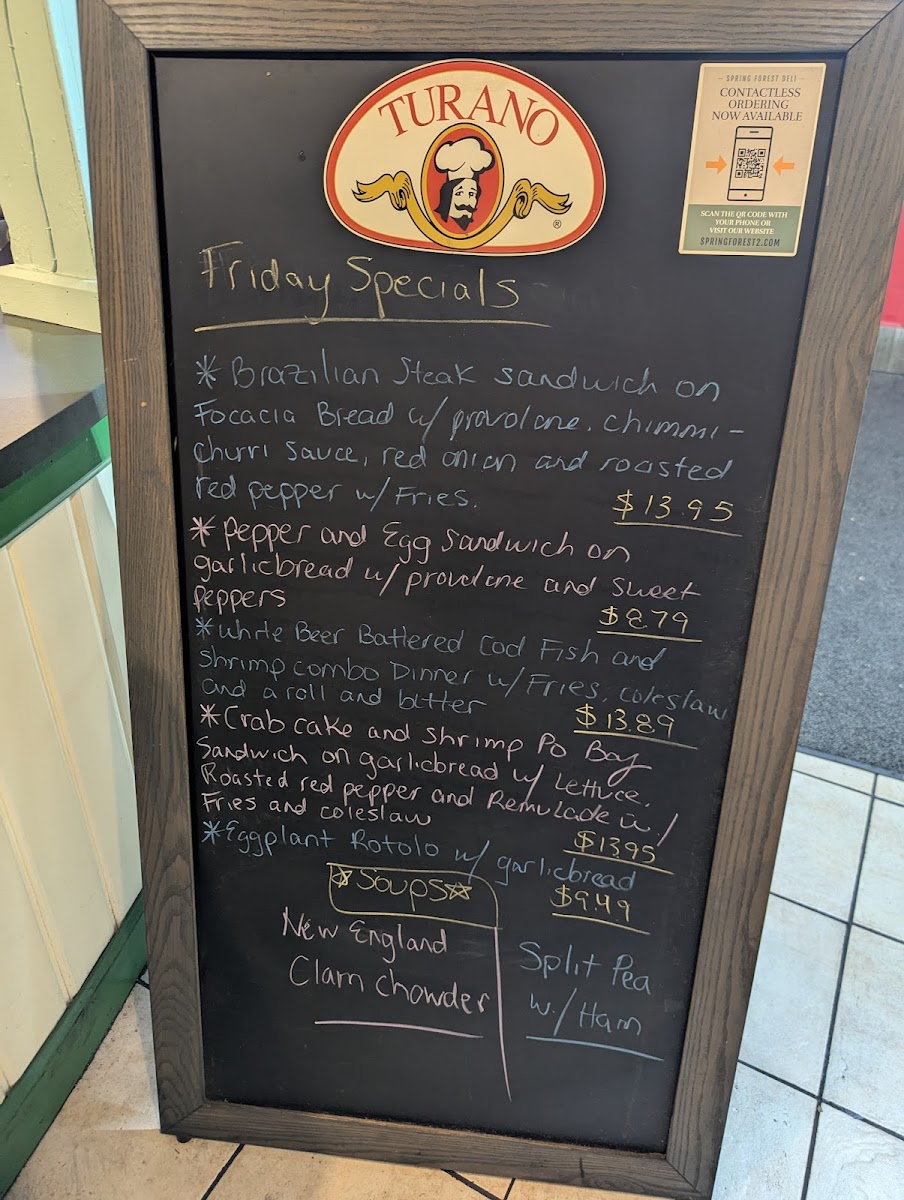 TURANO
®
SPRING FOREST DELI
CONTACTLESS
ORDERING
NOW AVAILABLE
SCAN THE QR CODE WITH
YOUR PHONE OR
VISIT OUR WEBSITE
SPRINGFOREST2.COM
Friday Specials
* Brazilian Steak sandwich on
Focacia Bread w/ provolone, chimmi-
churri sauce, red onion and roasted
red pepper w/ Fries.
$13.95
* Pepper and Egg sandwich on
garlicbread w/ provolone and sweet
peppers
$8.79
* White Beer Battered Cod Fish and
shrimp combo Dinner w/ Fries, coleslaw
and a roll and butter
$13.89
* Crab cake and shrimp Po Boy
Sandwich on garlicbread w/ Lettuce,
Roasted red pepper and Remulade w./
Fries and coleslaw
$13.95
* Eggplant Rotolo w/ garlicbread
$9.49
☆ Soups ☆
New England
Clam Chowder
Split Pea
w./ Ham